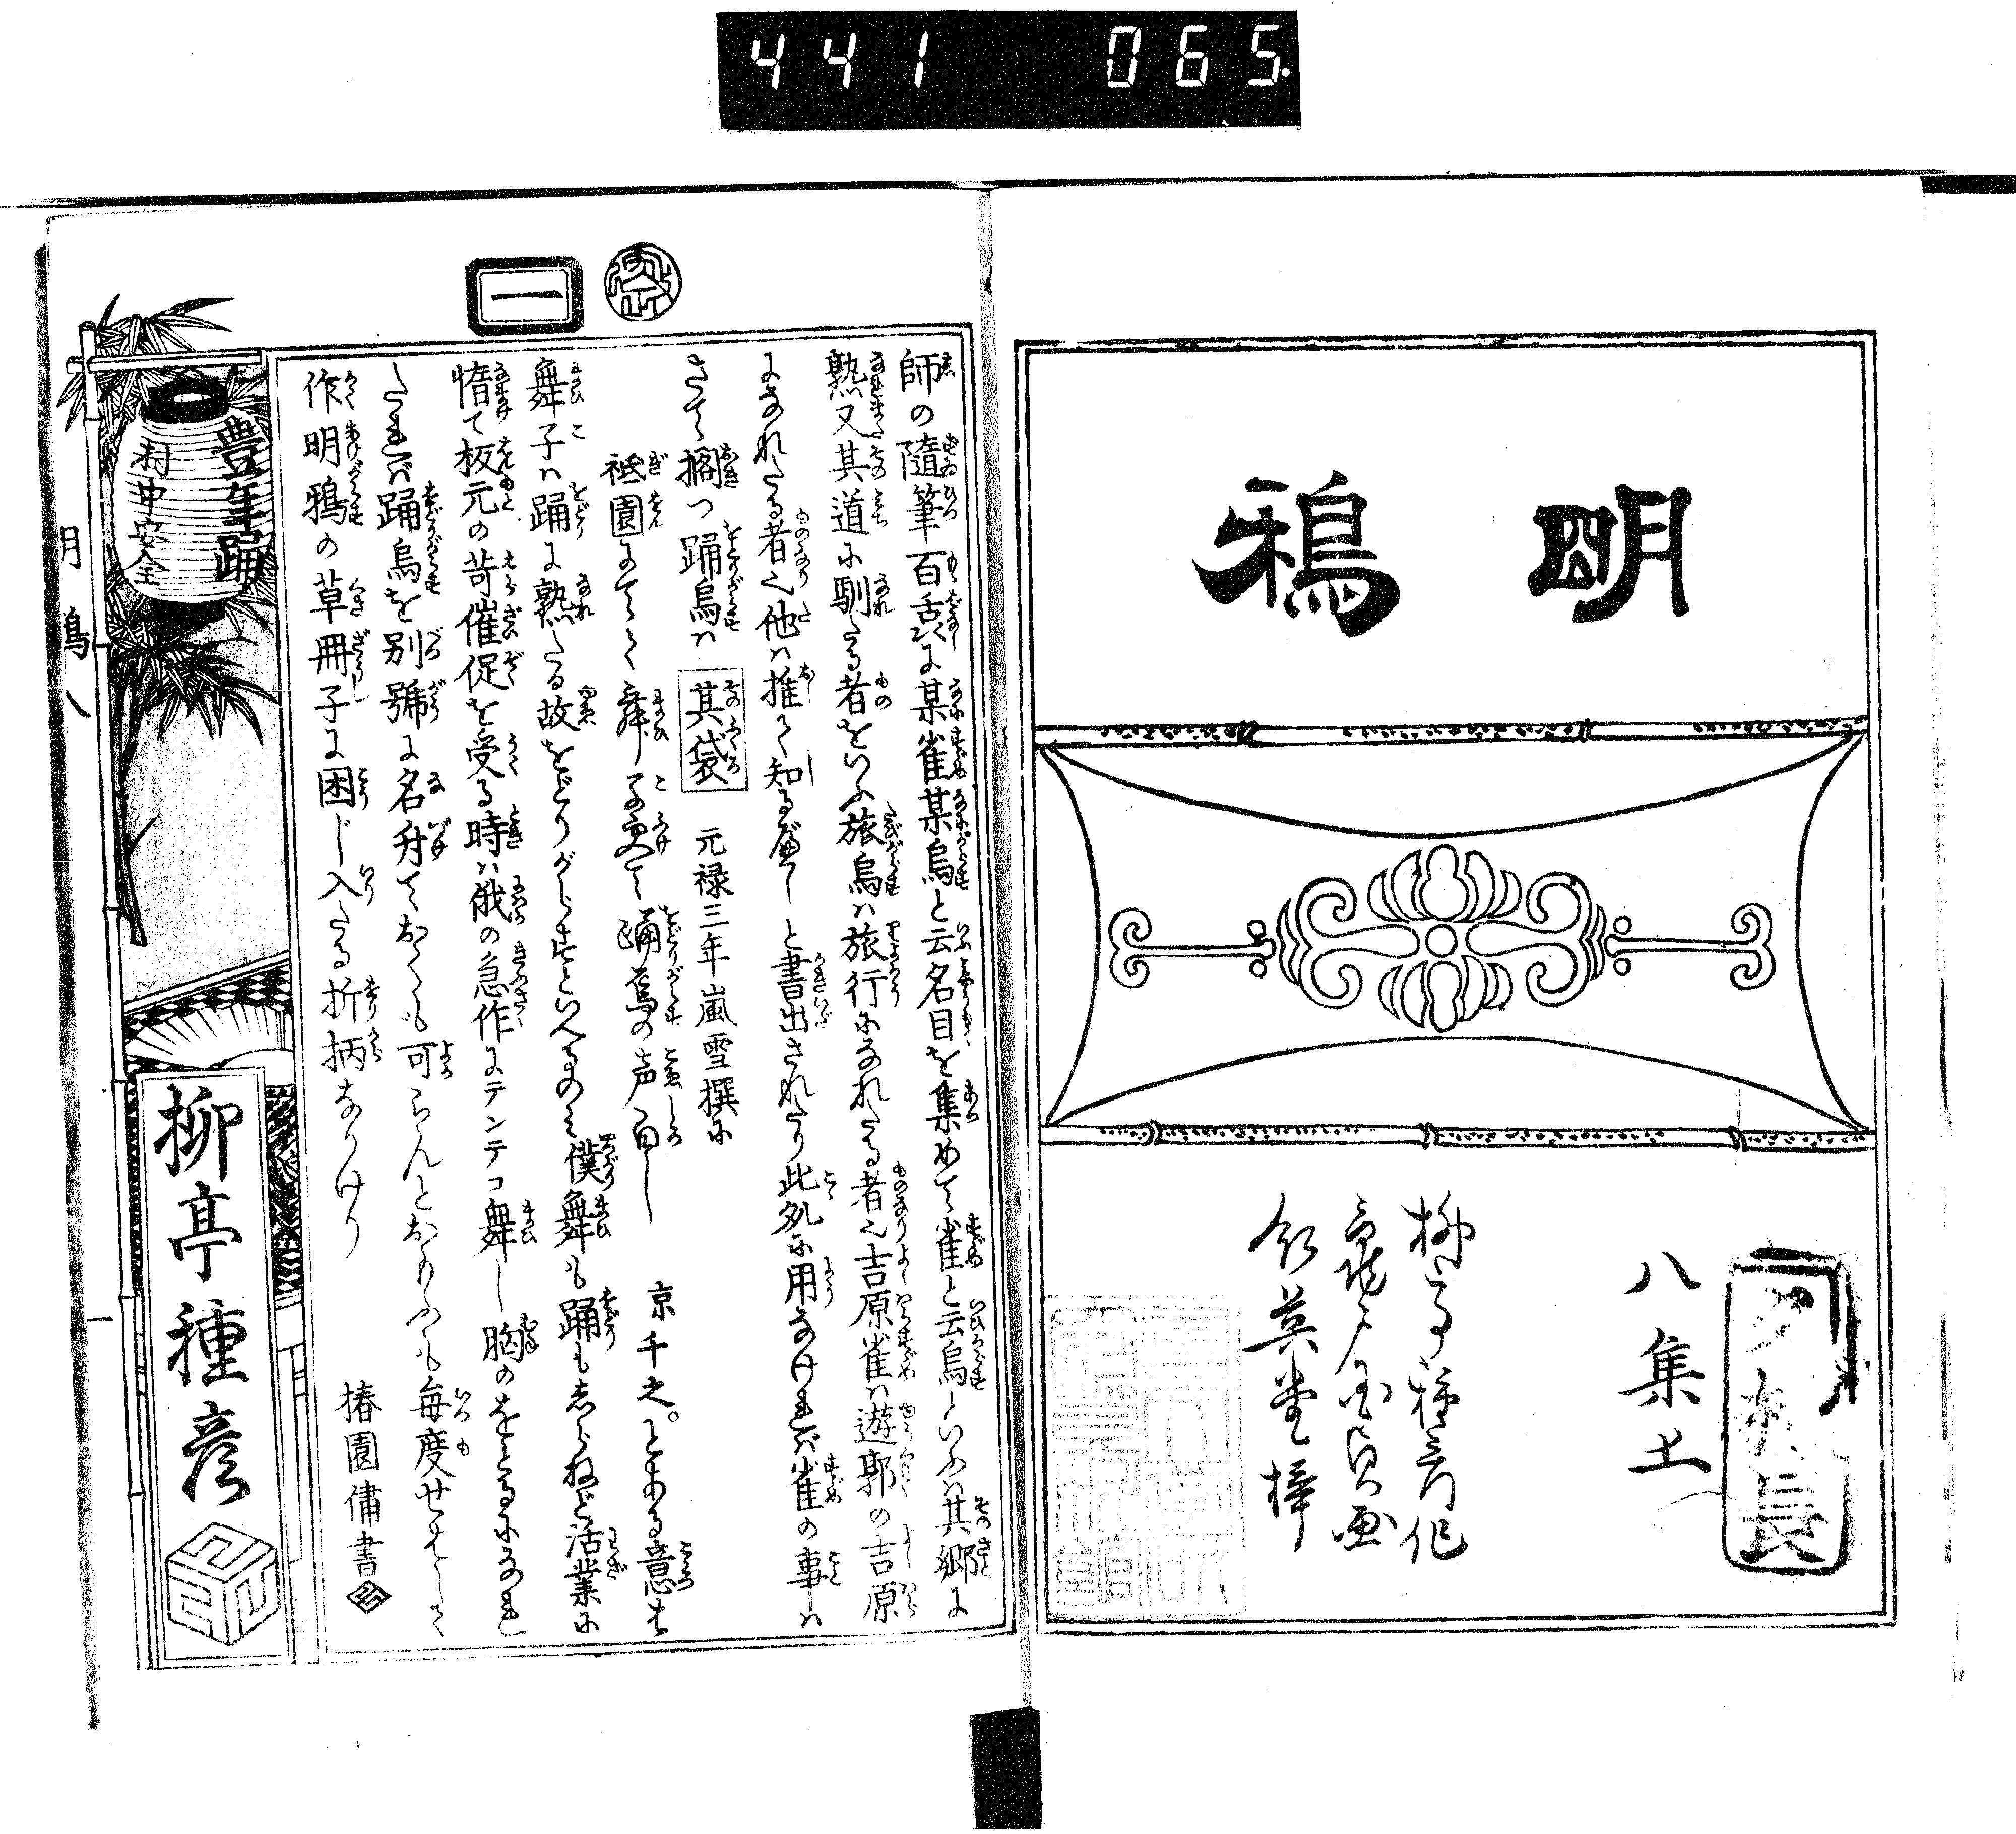 441 065.
明鴉
八集上
柳亭種彦作
一
師の隨筆百舌に某雀某烏と云名目を集めて雀と云烏といふハ其郷に
熟又其道に馴たる者をいふ旅烏ハ旅行になれたる者也吉原雀ハ遊郭の吉原
になれたる者也他ハ推て知るべしと書出されたり此処に用なけれバ雀の事ハ
さて擱つ踊烏ハ 其袋 元禄三年嵐雪撰に
祇園にて 舞子更て踊烏の声白し 京千之。とある意は
舞子ハ踊に熟たる故をどりがらすといへるのミ僕舞も踊もしらねど活業に
惰て板元の苛催促を受る時ハ俄の急作にテンテコ舞し胸のをどるになれ
たれバ踊烏を別號に名舟ておくも可らんとおもふも毎度せはしく
作明鴉の草冊子に困じ入たる折柄なりけり
椿園備書
豊年踊
村中安全
柳亭種彦
明鴉八
一